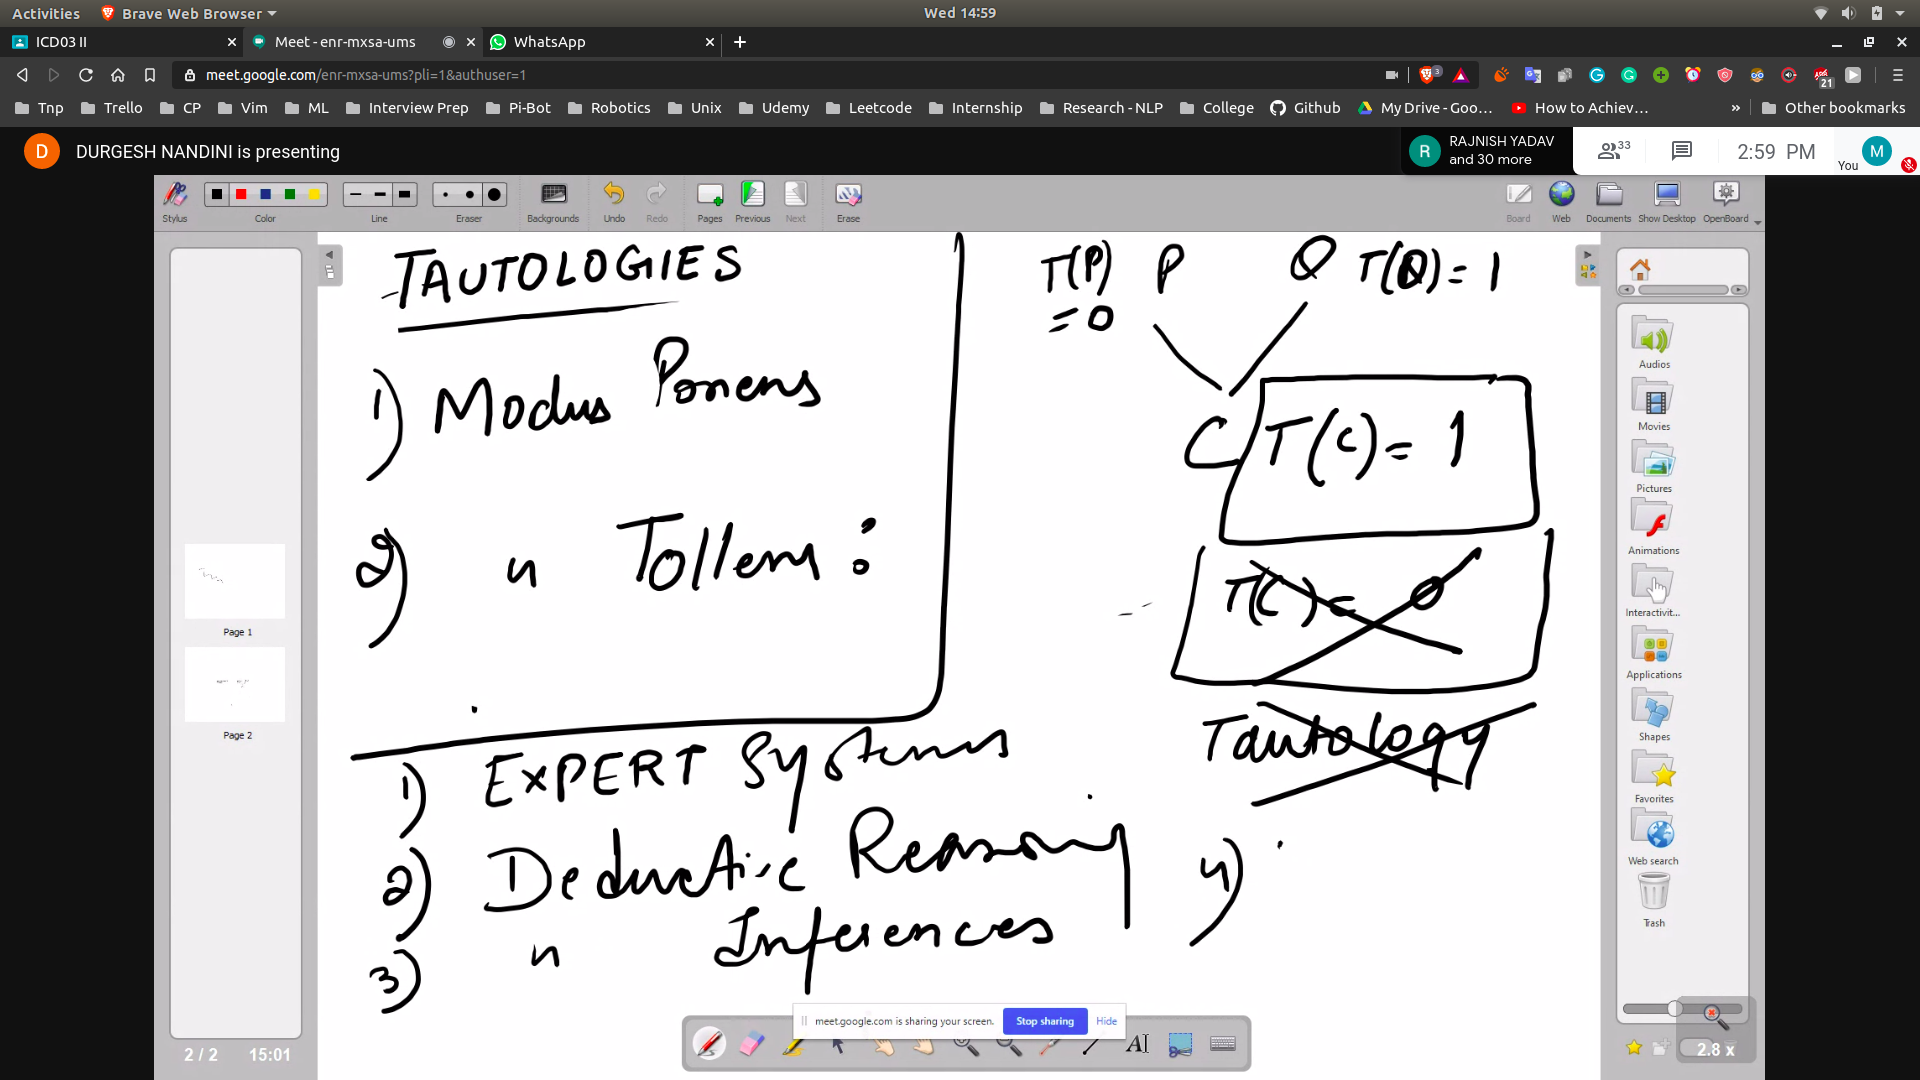 Activities Brave Web Browser Wed 14:59
ICD03 II Meet - enr-mxsa-ums WhatsApp
meet.google.com/enr-mxsa-ums?pli=1&authuser=1 3 21
Tnp Trello CP Vim ML Interview Prep Pi-Bot Robotics Unix Udemy Leetcode Internship Research - NLP College Github My Drive - Goo... How to Achiev... » Other bookmarks
D DURGESH NANDINI is presenting
R RAJNISH YADAV
and 30 more
33 2:59 PM You M
Stylus Color Line Eraser Backgrounds Undo Redo Pages Previous Next Erase Board Web Documents Show Desktop OpenBoard
TAUTOLOGIES
1) Modus Ponens
2) " Tollens :
T(P) P Q T(Q) = 1
= 0
C T(C) = 1
T(C) = 0
Tautology
1) EXPERT Systems
2) Deductive Reasoning
3) " Inferences
4)
Page 1
Page 2
Audios
Movies
Pictures
Animations
Interactivit...
Applications
Shapes
Favorites
Web search
Trash
meet.google.com is sharing your screen. Stop sharing Hide
2 / 2 15:01
AI
2.8 x